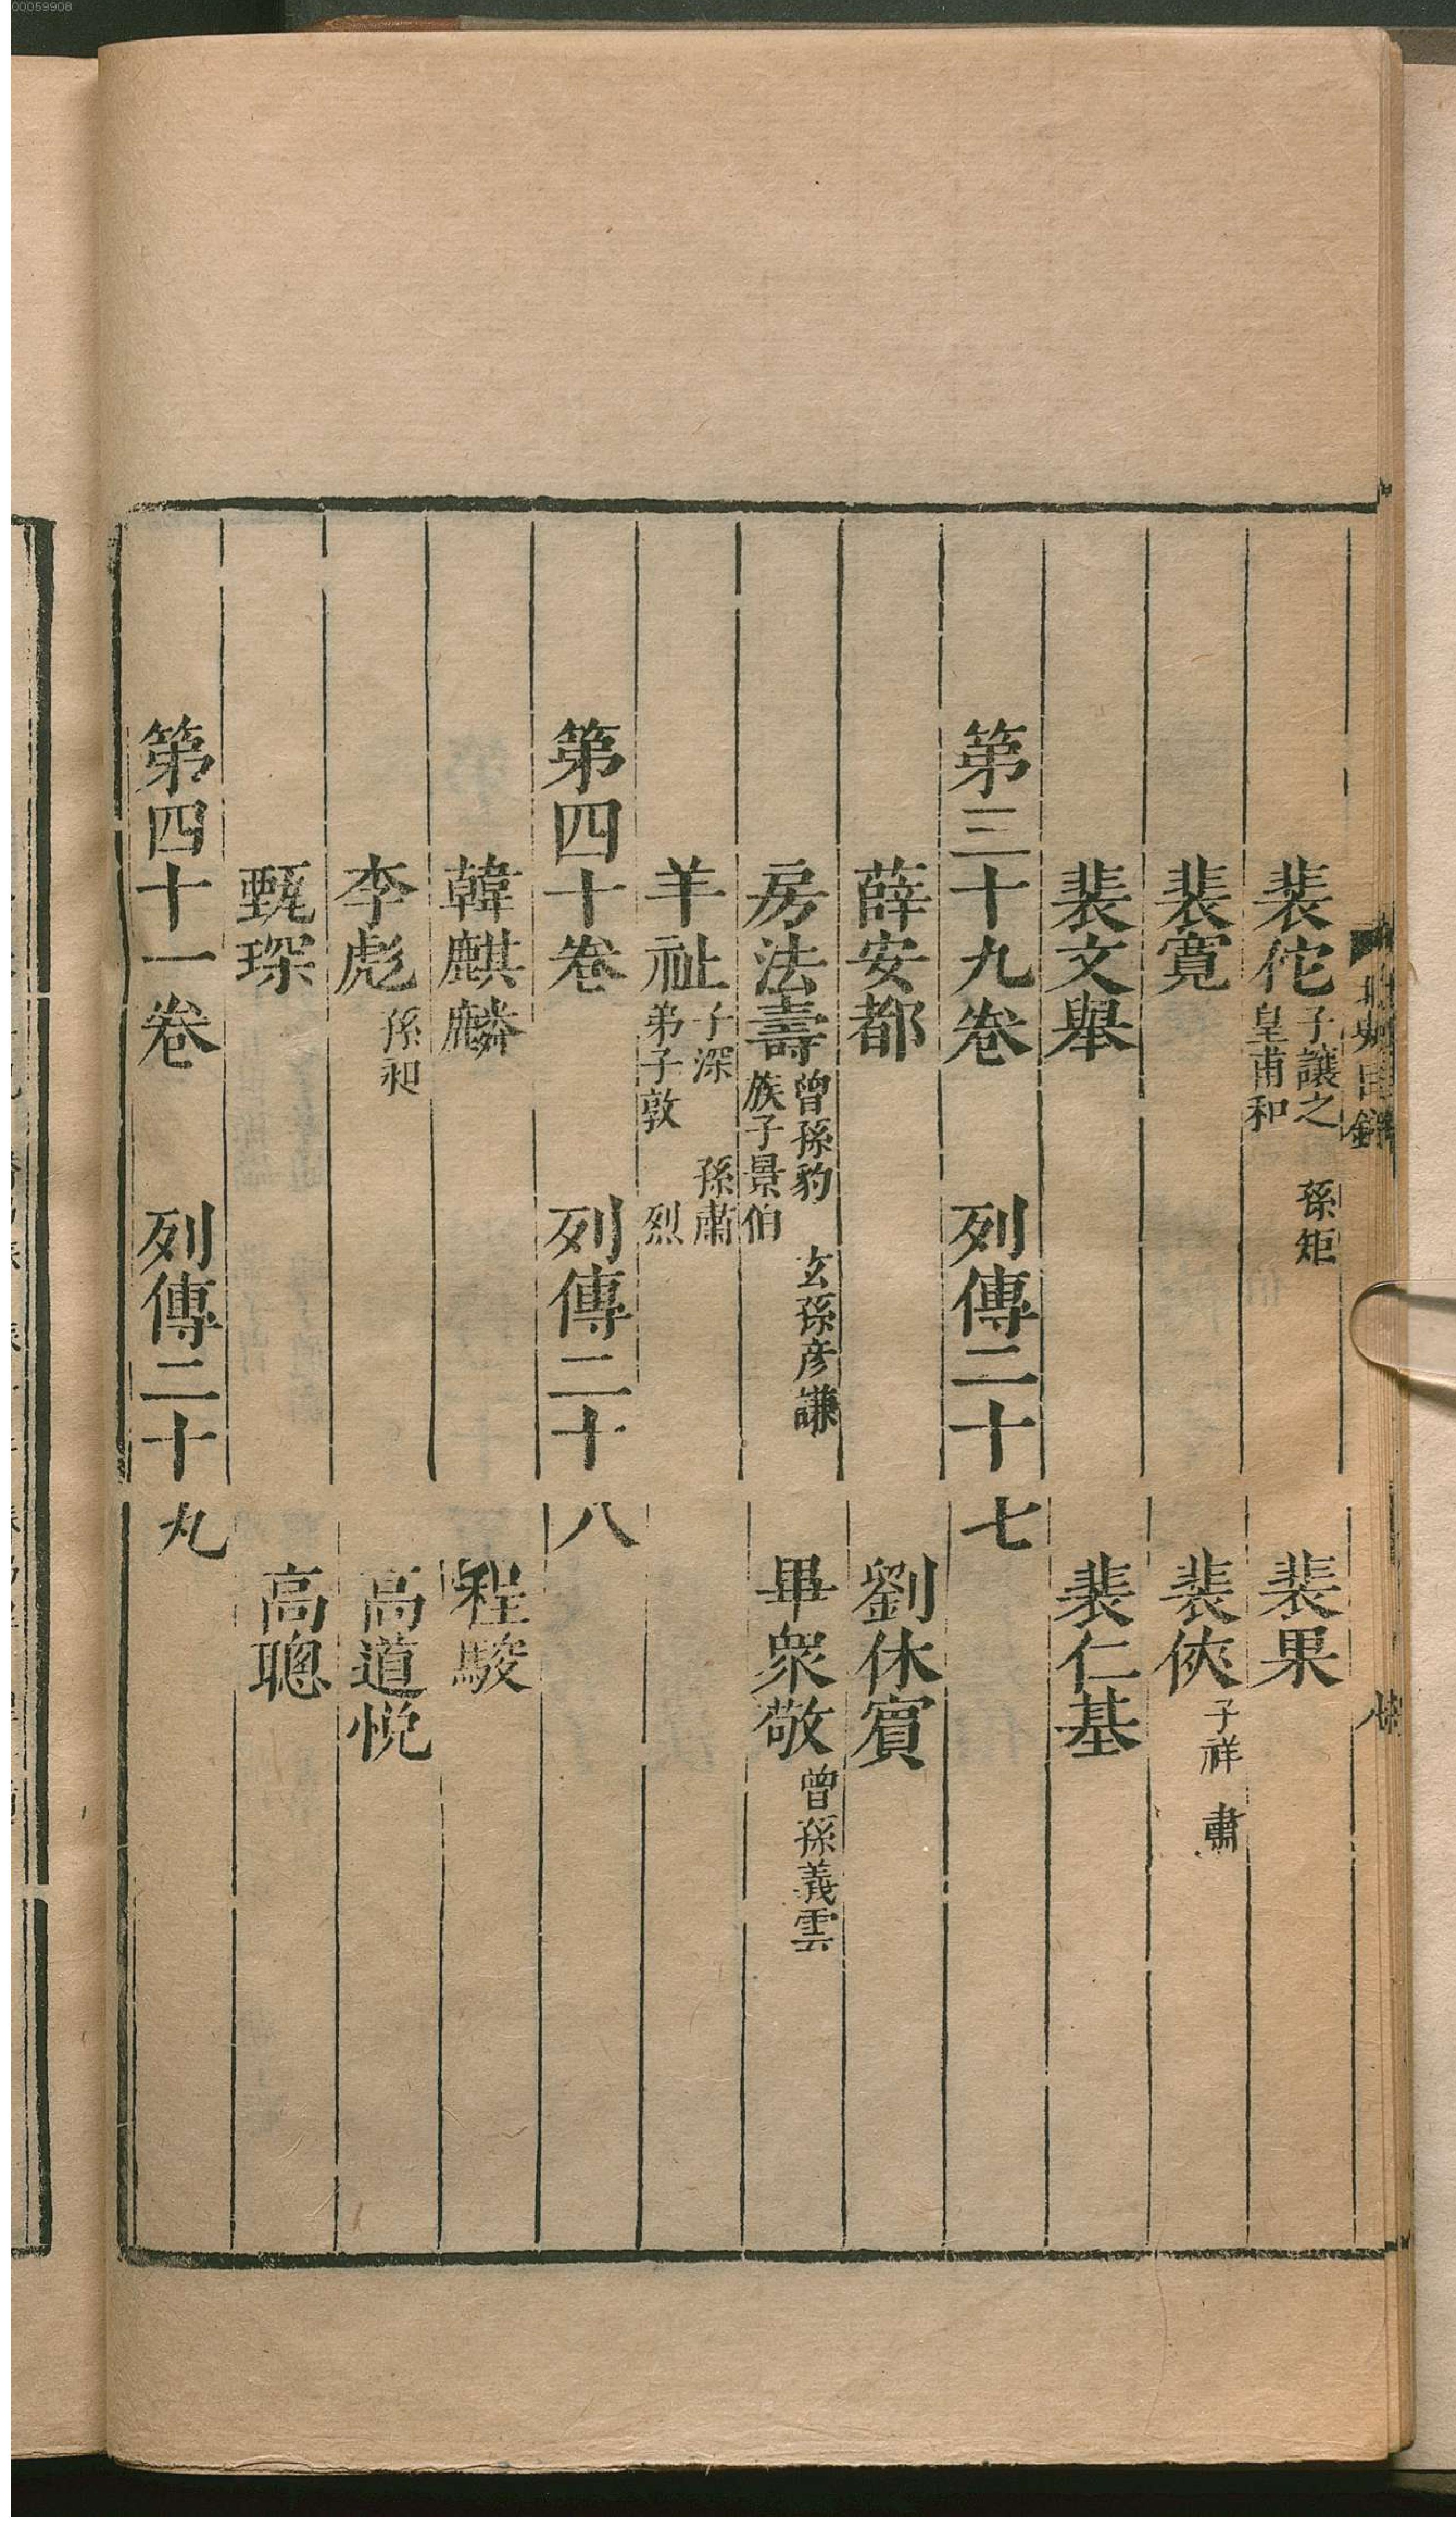 00059908
裴佗 子讓之 孫矩 皇甫和 裴果
裴寬 裴俠 子祥 肅
裴文舉 裴仁基
第三十九卷 列傳二十七
薛安都 劉休賓
房法壽 曾孫豹 玄孫彦謙 族子景伯 畢衆敬 曾孫義雲
羊祉 子深 孫肅 弟子敦 烈
第四十卷 列傳二十八
韓麒麟 程駿
李彪 孫昶 高道悅
甄琛 高聰
第四十一卷 列傳二十九